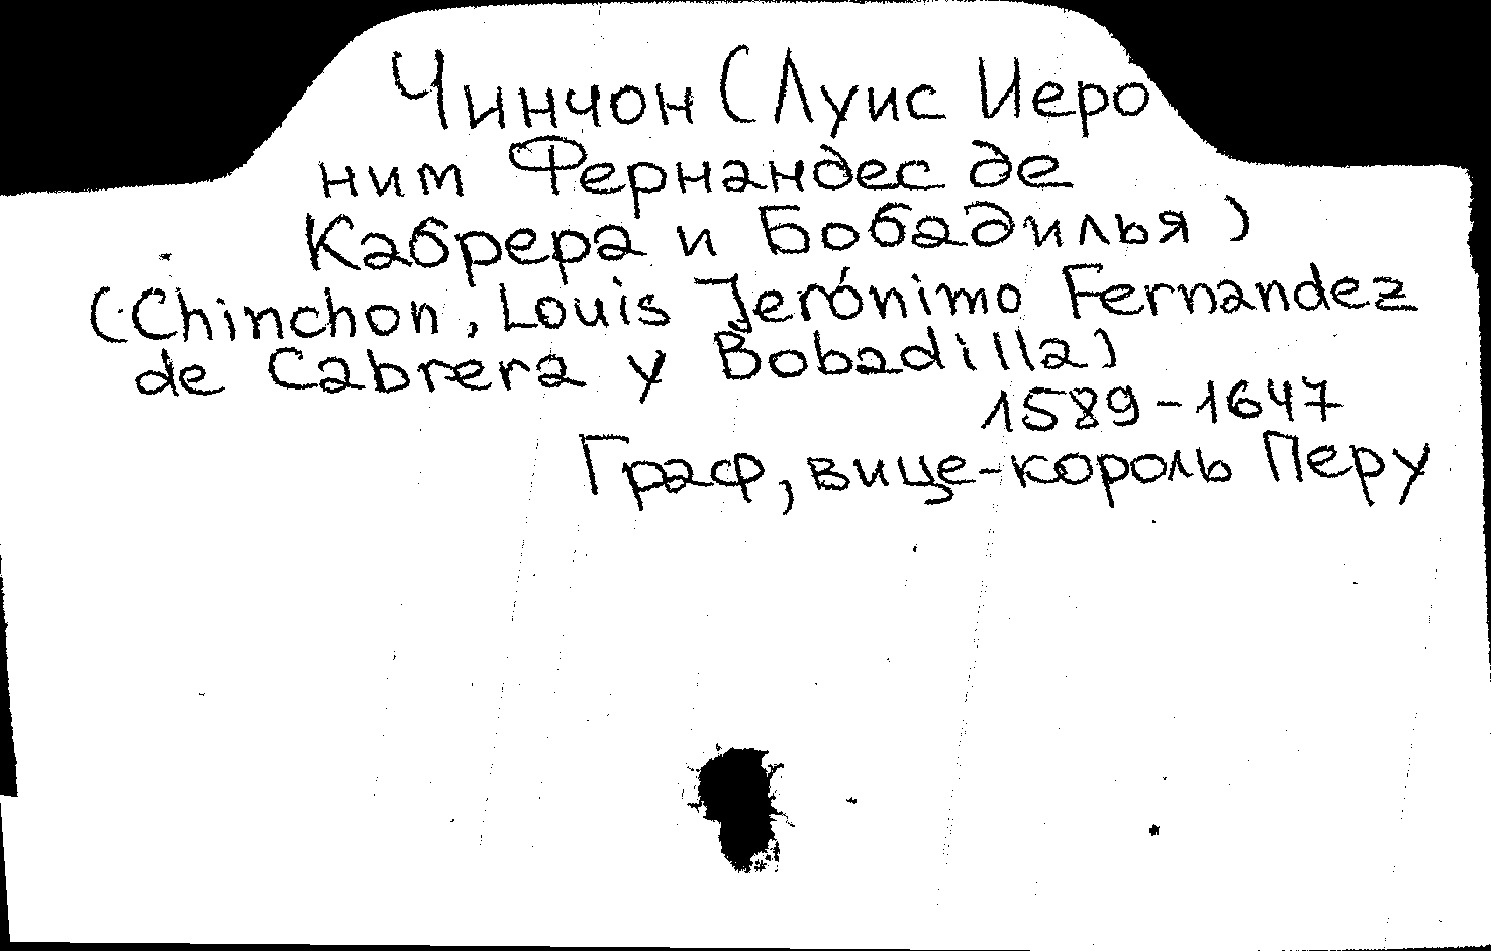 Чинчон (Луис Иеро
ним Фернандес де
Кабрера и Бобадилья)
(Chinchon, Louis Jerónimo Fernandez
de Cabrera y Bobadilla)
1589-1647
Граф, вице-король Перу